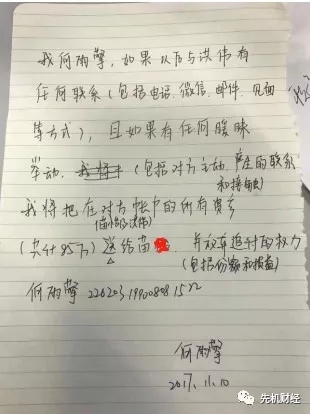 我何雨擎，如果以后与洪伟有
任何联系（包括电话.微信.邮件.见面
等方式），且如果有任何暧昧
举动，（包括对方主动产生的联系
和接触）
我将把在对方帐户的所有资金
（共计85万）送给苗 并放弃追讨的权力
（包括份额和损益）
何雨擎
何雨擎
2017.11.10
先机财经